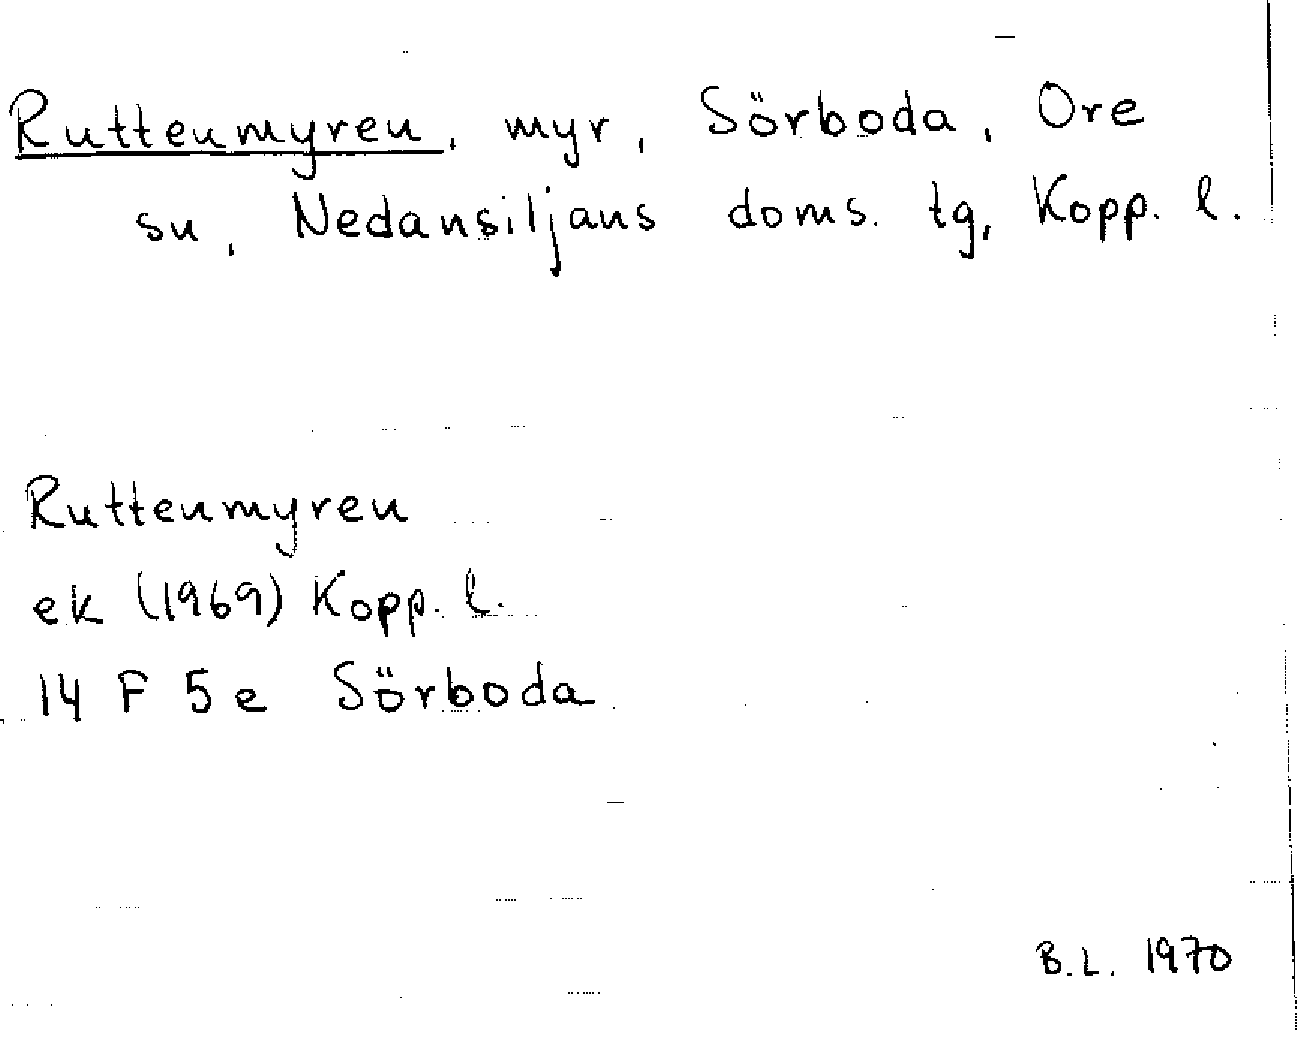 Ruttenmyren, myr, Sörboda, Ore
sn, Nedansiljans doms. tg, Kopp. l.
Ruttenmyren
ek (1969) Kopp. l.
14 F 5e Sörboda
B.L. 1970